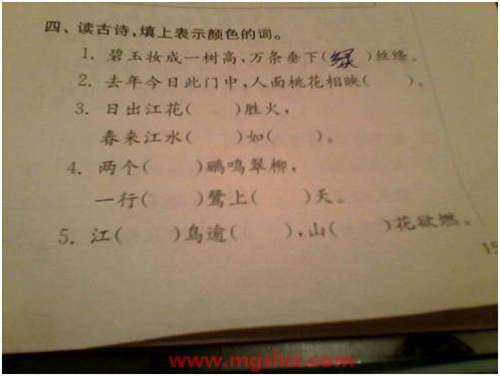 四、读古诗,填上表示颜色的词。
1. 碧玉妆成一树高,万条垂下(绿)丝绦。
2. 去年今日此门中,人面桃花相映(    )。
3. 日出江花(    )胜火,
春来江水(    )如(    )。
4. 两个(    )鹂鸣翠柳,
一行(    )鹭上(    )天。
5. 江(    )鸟逾(    ),山(    )花欲燃。
www.mgshix.com